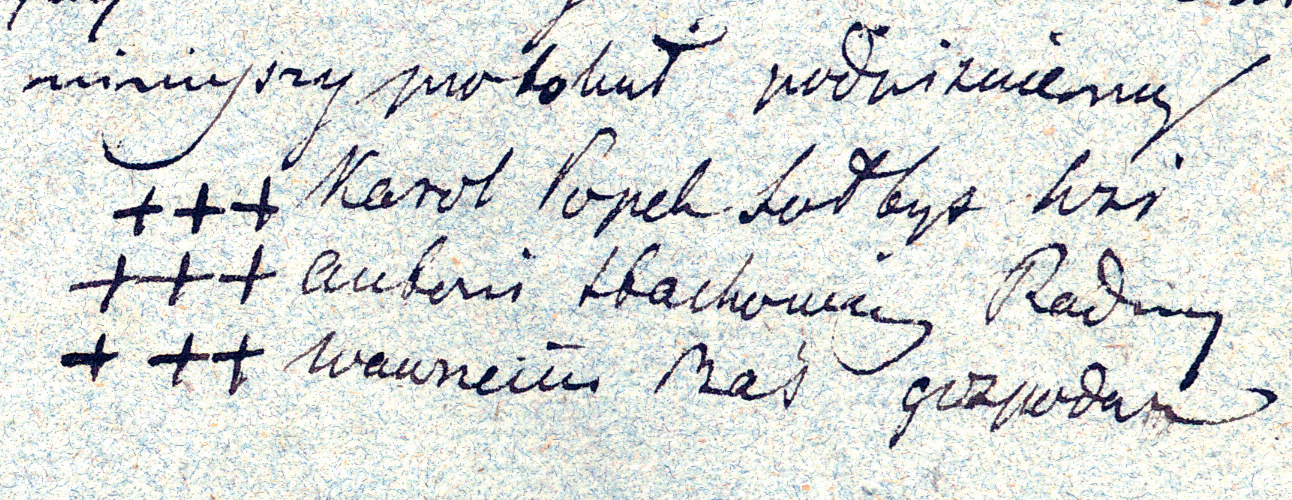 niniejszy protokuł podpiszuiemy
+++ Karol Popek Sołtys wsi
+++ Antoni Radny
+++ wawrzeniec Baś gozpodarz